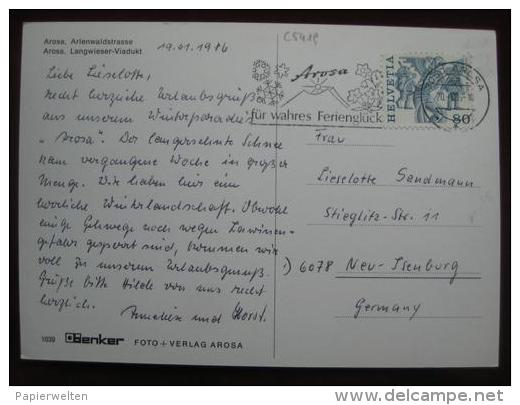 Arosa, Arlenwaldstrasse
Arosa, Langwieser-Viadukt
19.01.1986
C5419
Liebe Lieselotte,
recht herzliche Urlaubsgrüße
aus unserem Winterparadies
"Arosa". Der langersehnte Schnee
kam vergangene Woche in großer
Menge. Wir haben hier eine
herrliche Winterlandschaft. Obwohl
einige Gehwege noch wegen Lawinen-
gefahr gesperrt sind, kommen wir
voll zu unserem Urlaubsgenuß.
Grüße bitte Hilde von uns recht
herzlich.
Annelie und Horst.
Arosa
für wahres Ferienglück
HELVETIA
80
Frau
Lieselotte Sandmann
Stieglitz-Str. 11
6078 Neu-Isenburg
Germany
1039 Denker FOTO + VERLAG AROSA
© Papierwelten
http://www.delcampe.net